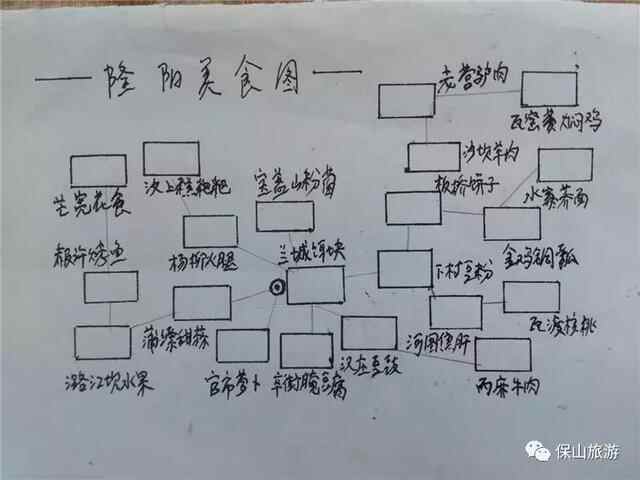 隆阳美食图
老营驴肉
瓦窑黄焖鸡
沙坝羊肉
板桥饼子
水寨荞面
芒宽花食
汶上糕粑粑
宝盖山粉
金鸡铜瓢
杨柳火腿
兰城饵块
下村豆粉
潞江坝水果
蒲缥甜蒜
官市萝卜
辛街腌豆腐
汉庄豆豉
河图烧肝
瓦渡核桃
丙麻牛肉
保山旅游